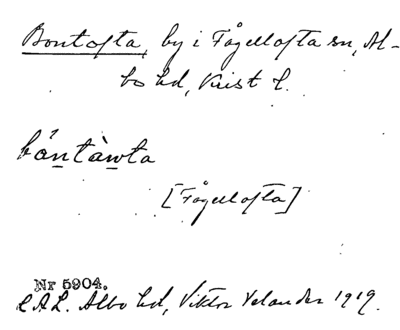 Bontofta, by i Fågeltofta sn, Al-
bo hd, Krist. l.
bȯntàwta
[Fågeltofta]
Nr 5904.
L.A.L. Albo hd, Viktor Velander 1919.